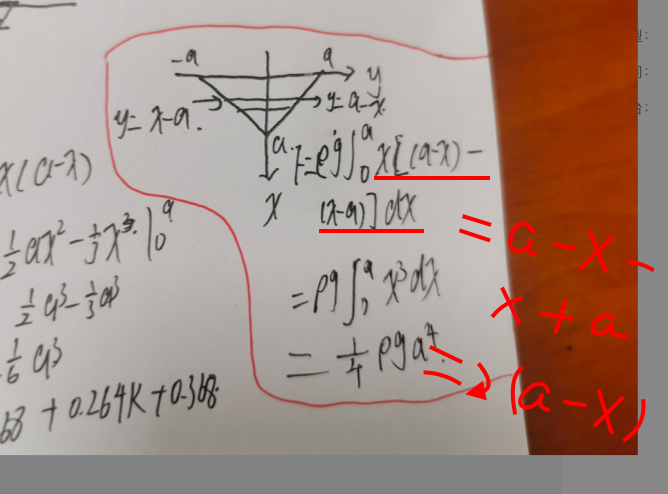 -a a y
y=x-a. y=a-x
a.
x
F=ρg∫₀ᵃ x[(a-x)-
(x-a)]dx
=ρg∫₀ᵃ x³dx
=¼ρga⁴.
x(a-x)
½ax²-⅓x³|₀ᵃ
½a³-⅓a³
⅙a³
68+0.264K+0.368
=a-x-
x+a
2(a-x)